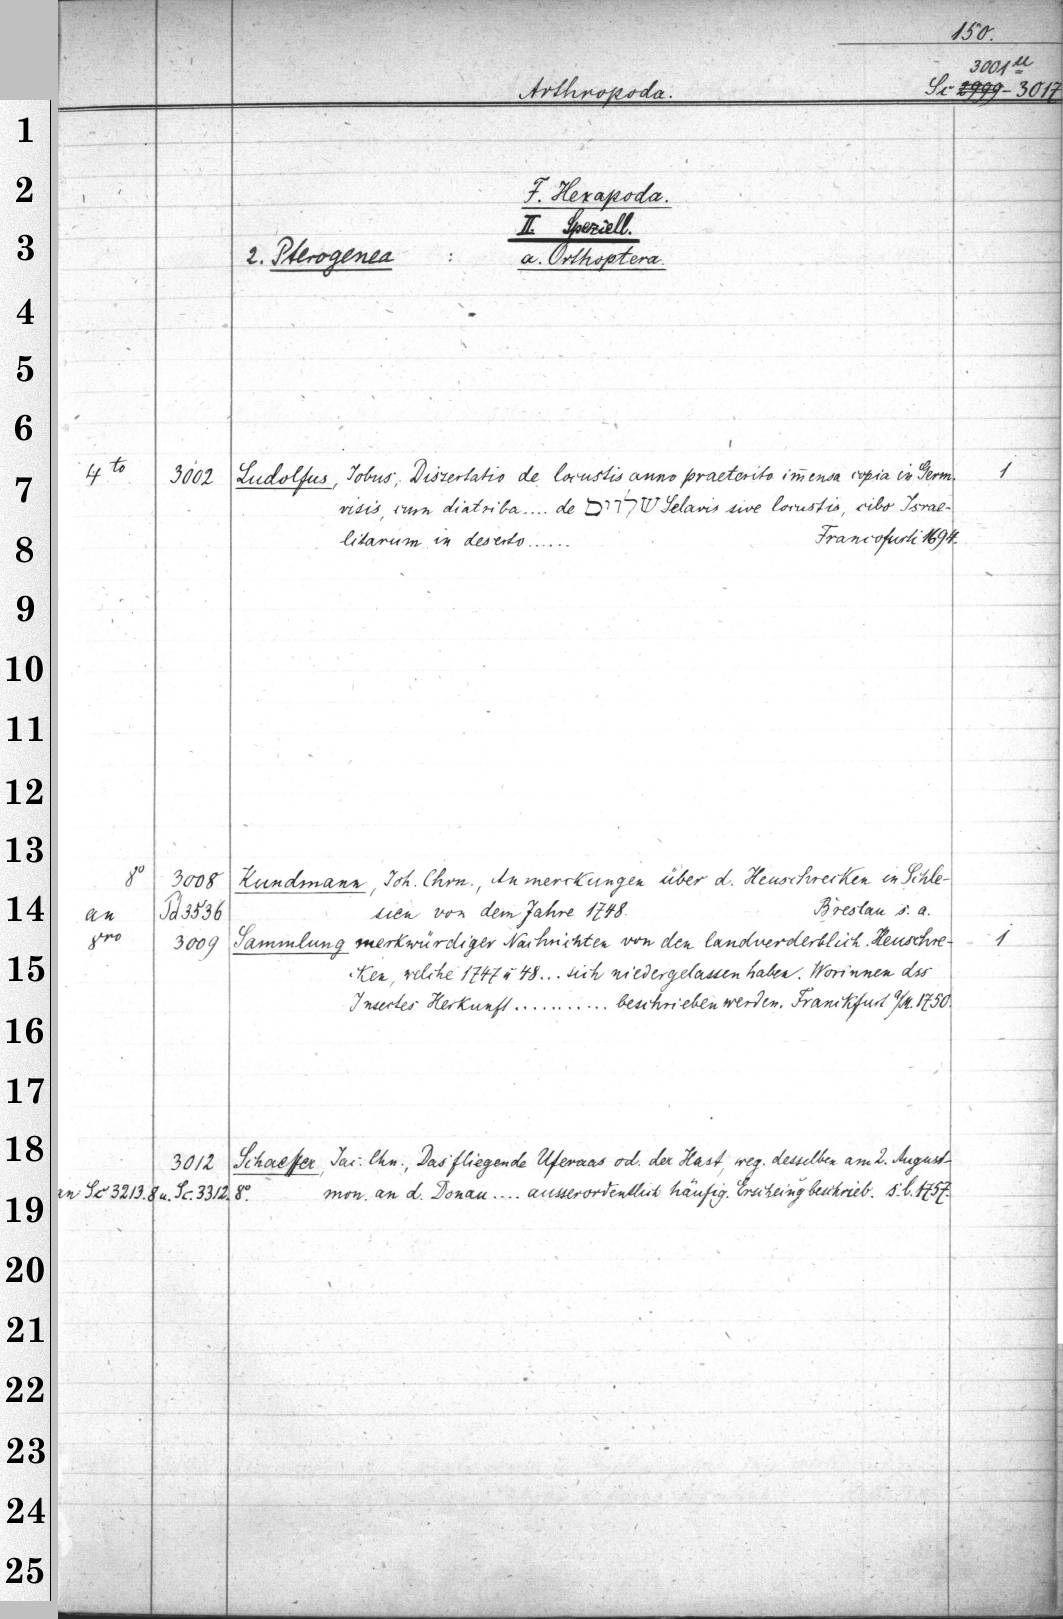 150.
3001 u
Arthropoda. Sc 2999 - 3017
1
2 F. Hexapoda.
II. Speziell.
3 2. Pterogenea : a. Orthoptera.
4
5
6
7 4to 3002 Ludolfus, Jobus, Dissertatio de locustis anno praeterito im̄ensa copia in Germ. 1
visis, cum diatriba .... de שלוים Selavis sive locustis, cibo Israe-
8 litarum in deserto ...... Francofurti 1694.
9
10
11
12
13
8° 3008 Kundmann, Joh. Chrn., Anmerckungen über d. Heuschrecken in Schle-
14 an Pd 3536 sien von dem Jahre 1748. Breslau s. a.
8vo 3009 Sammlung merkwürdiger Nachrichten von den landverderblich. Heuschre- 1
15 cken, welche 1747 u 48 ... sich niedergelassen haben. Worinnen dss
Insectes Herkunft ........... beschrieben werden. Franckfurt a/M. 1750.
16
17
18 3012 Schaeffer, Jac. Chn., Das fliegende Uferaas od. der Hast, weg. desselben am 2. August-
19 an Sc 3213.8 u. Sc. 3312. 8°. mon. an d. Donau .... ausserordentlich häufig. Erscheing beschrieb. s. l. 1757.
20
21
22
23
24
25